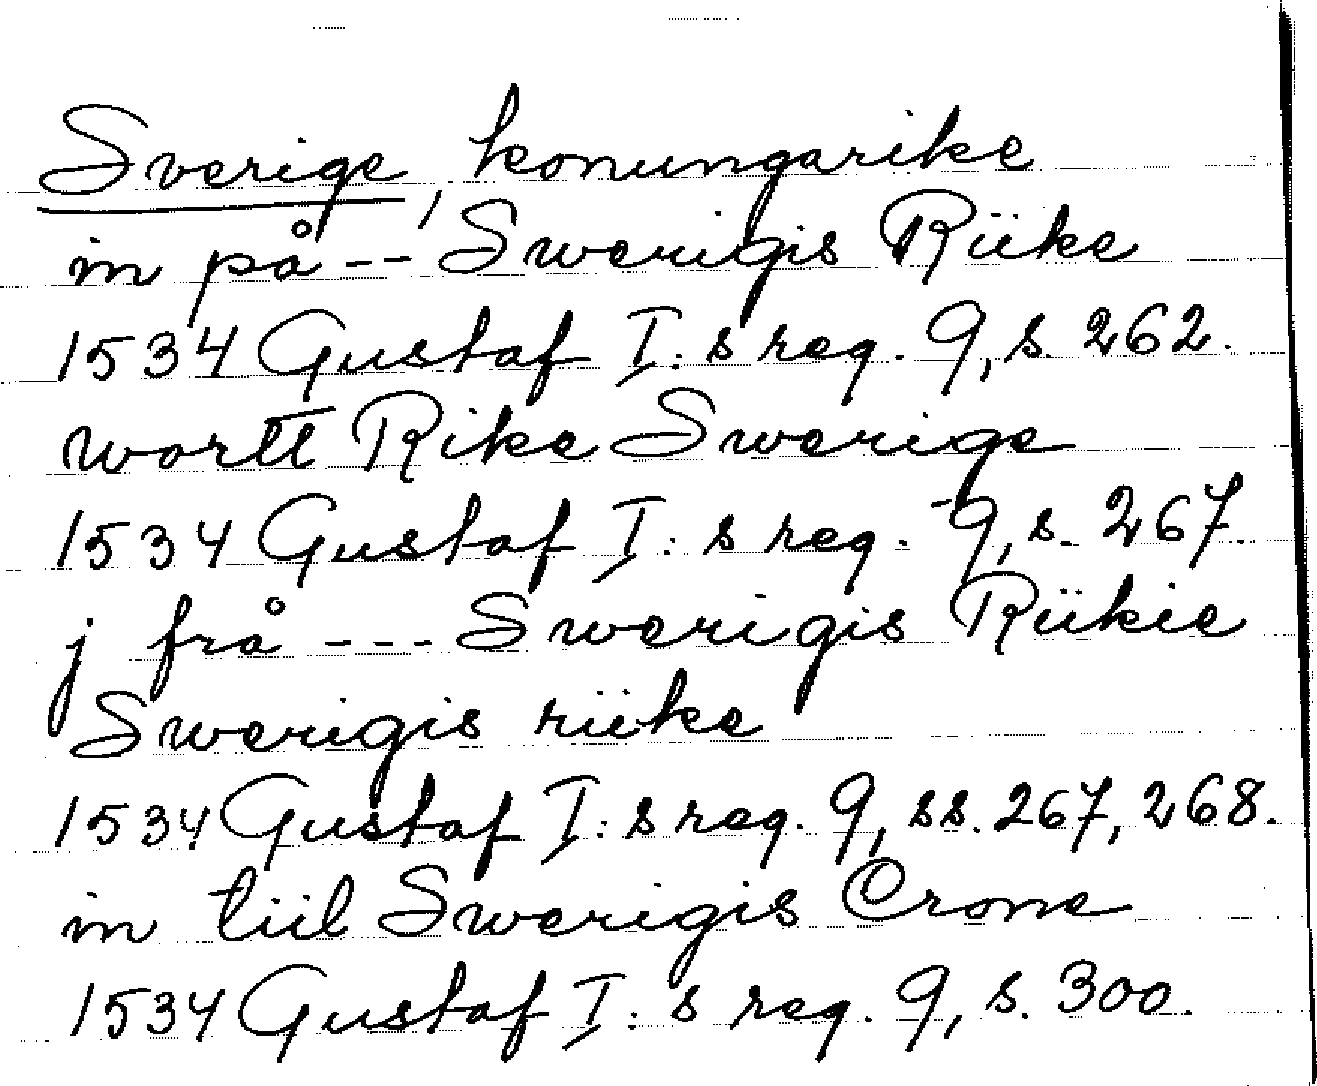 Sverige, konungarike
in på -- Swerigis Riike
1534 Gustaf I:s reg. 9, s. 262.
wortt Rike Swerige
1534 Gustaf I:s reg. 9, s. 267.
j frå --- Swerigis Riikie
Swerigis riike
1534 Gustaf I:s reg. 9, ss. 267, 268.
in tiil Swerigis Crone
1534 Gustaf I:s reg. 9, s. 300.